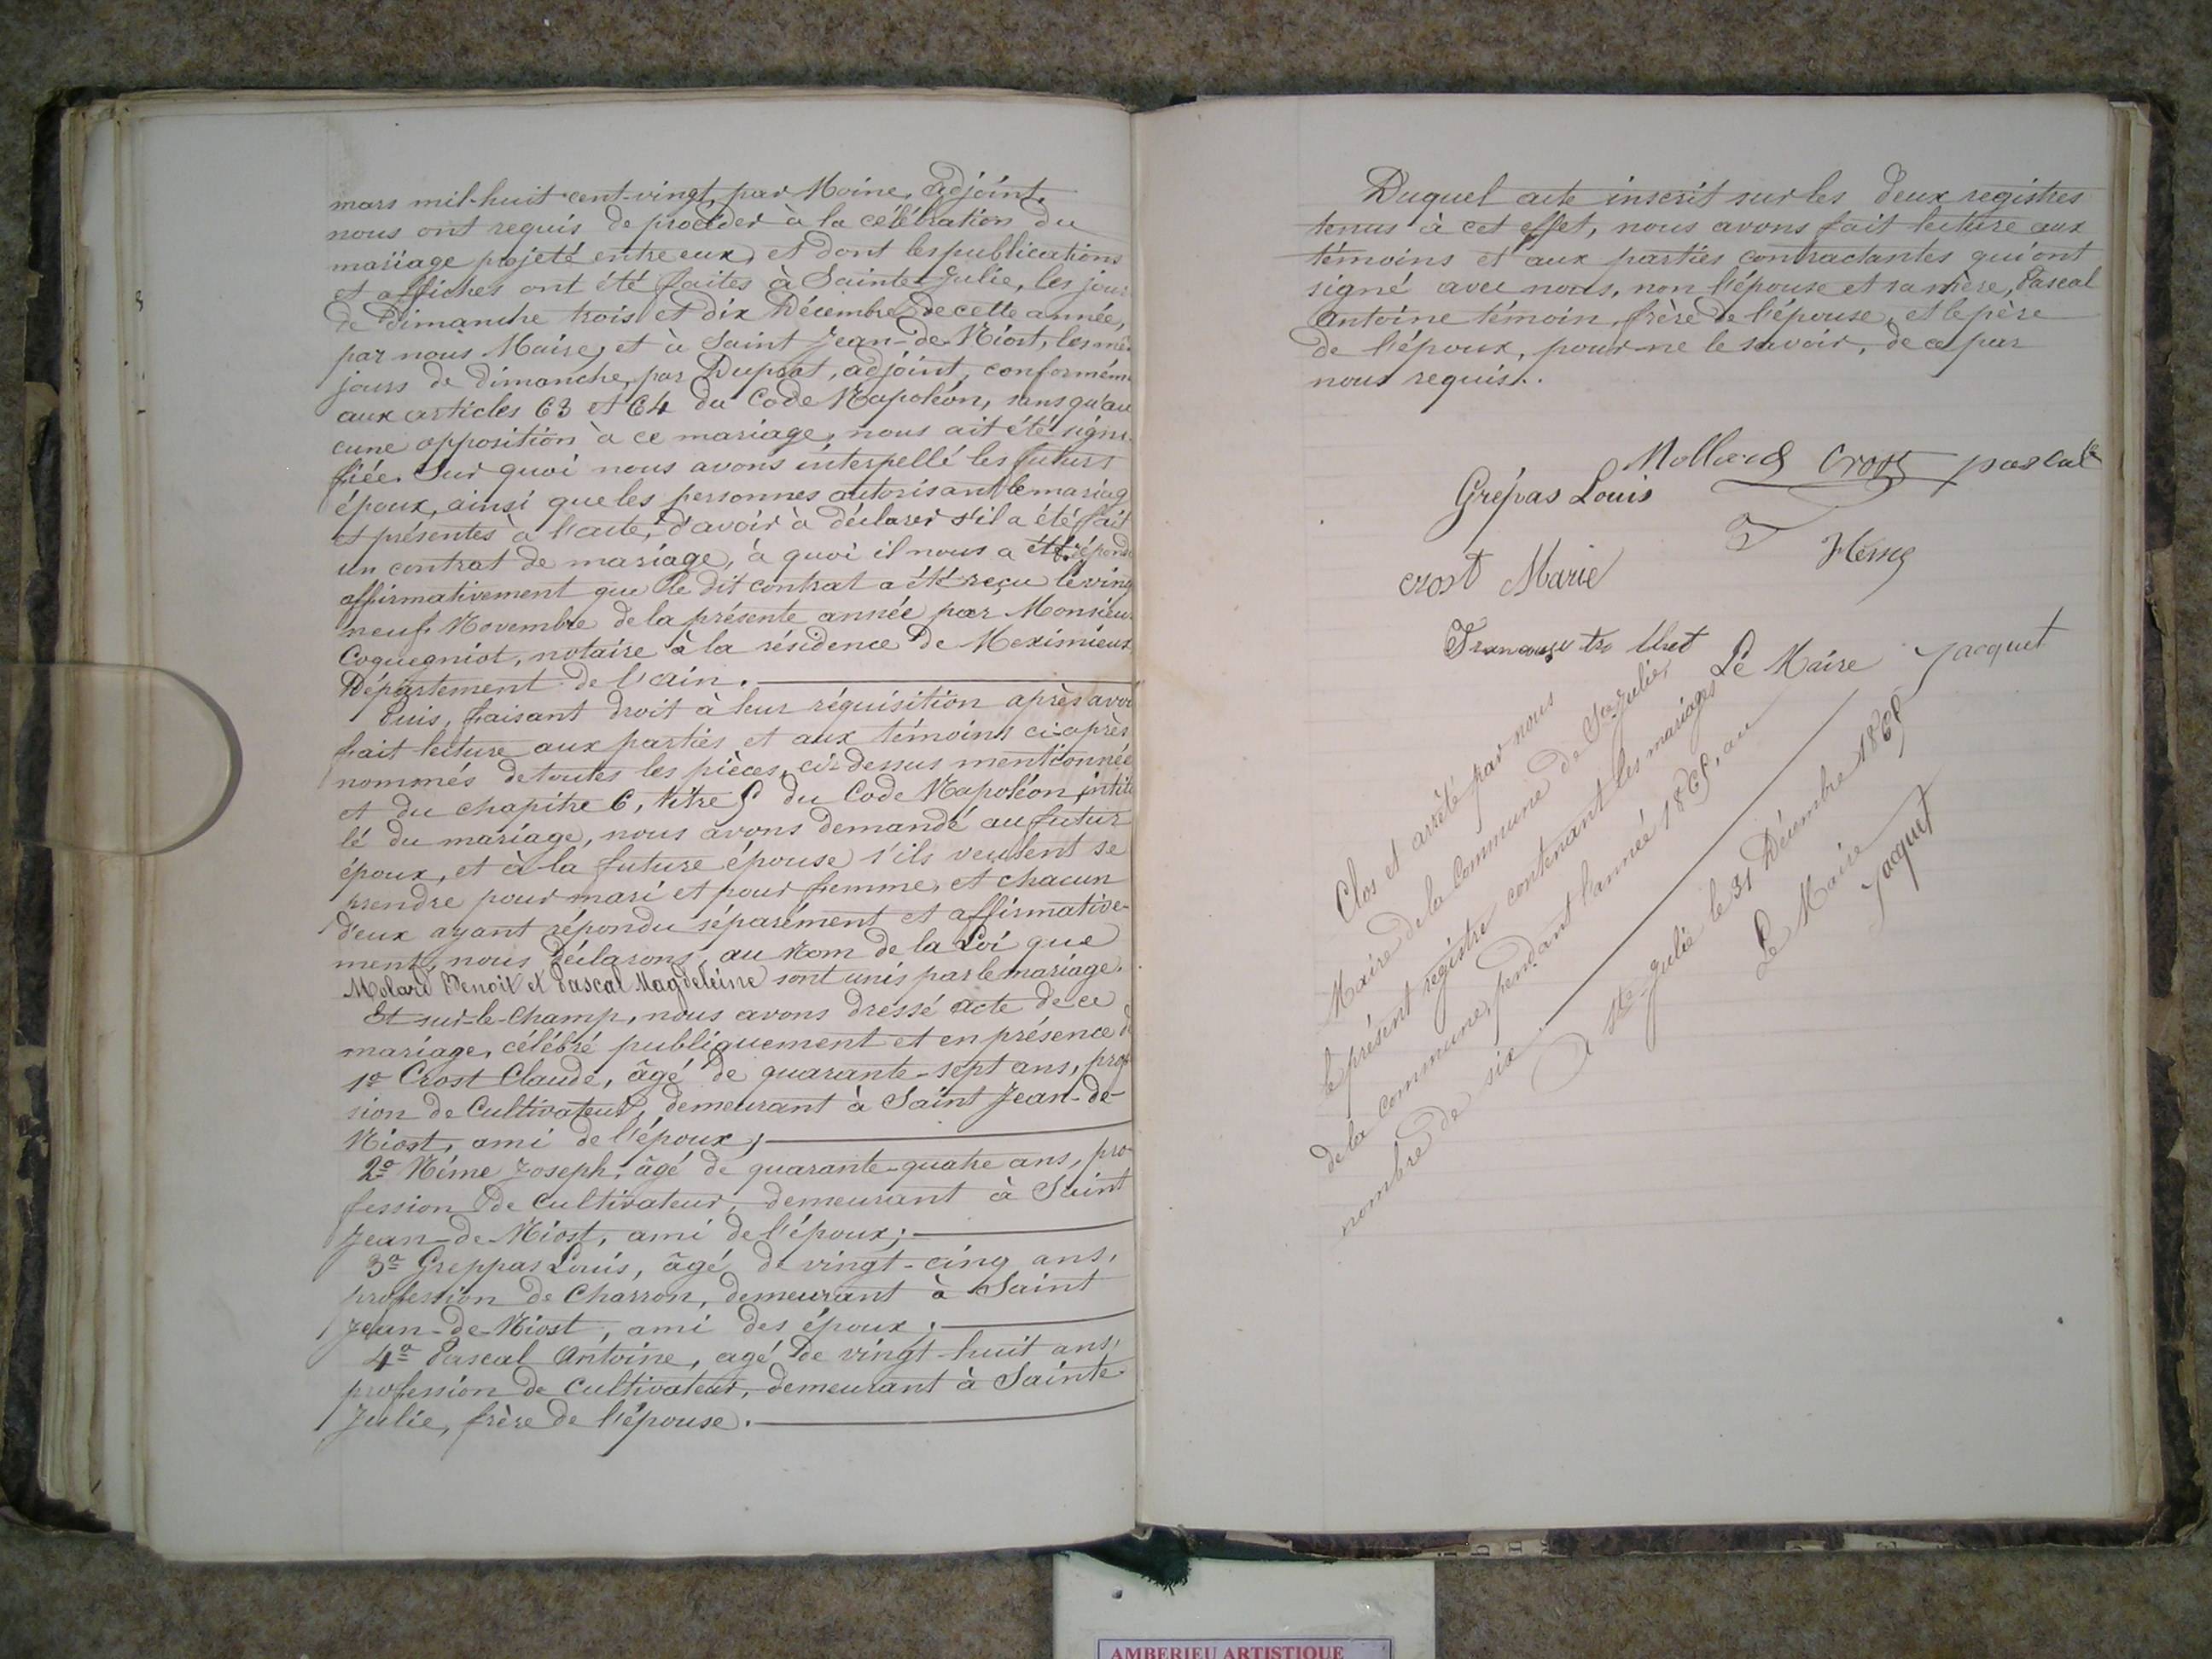 mars mil-huit cent-vingt, par Moine, Adjoint,
nous ont requis de procéder à la célébration du
mariage projeté entre eux, et dont les publications
et affiches ont été faites à Sainte-Julie, les jour
de Dimanche trois et dix Décembre de cette année,
par nous Maire, et à Saint Jean-de-Niost, les mê
jours de Dimanche, par Duprat, adjoint, conformém
aux articles 63 et 64 du Code Napoléon, sans qu'au
cune opposition à ce mariage, nous ait été signi-
fiée. Sur quoi nous avons interpellé les futurs
époux, ainsi que les personnes autorisant le mariag
et présentes à l'acte, d'avoir à déclarer s'il a été fait
un contrat de mariage, à quoi il nous a été répond
affirmativement que le dit contrat a été reçu le ving
neuf Novembre de la présente année par Monsieur
Coquegniot, notaire à la résidence de Meximieux
Département de l'ain.
Puis, faisant droit à leur réquisition après avoi
fait lecture aux parties et aux témoins ci-après
nommés de toutes les pièces, ci-dessus mentionnée
et du chapitre 6, titre 5 du Code Napoléon, intit
lé du mariage, nous avons demandé au futur
époux, et à la future épouse s'ils veulent se
prendre pour mari et pour femme, et chacun
d'eux ayant répondu séparément et affirmative-
ment, nous déclarons, au Nom de la Loi que
Molard Benoit et Pascal Magdeleine sont unis par le mariage.
Et sur-le-Champ, nous avons dressé acte de ce
mariage, célébré publiquement et en présence d
1º Crost Claude, âgé de quarante-sept ans, prof
sion de Cultivateur, demeurant à Saint Jean-de-
Niost, ami de l'époux;
2º Néme Joseph, âgé de quarante-quatre ans, pro-
fession de Cultivateur, demeurant à Saint
Jean-de-Niost, ami de l'époux;
3º Greppas Louis, âgé de vingt-cinq ans,
profession de Charron, demeurant à Saint
Jean-de-Niost, ami des époux;
4º Pascal Antoine, agé de vingt-huit ans,
profession de Cultivateur, demeurant à Sainte
Julie, frère de l'épouse.
Duquel acte inscrit sur les deux registres
tenus à cet effet, nous avons fait lecture aux
témoins et aux parties contractantes qui ont
signé avec nous, non l'épouse et sa mère, Pascal
Antoine témoin, frère de l'épouse, et le père
de l'époux, pour ne le savoir, de ce par
nous requis..
Mollard Crost pascal
Grépas Louis
crost Marie
Le Maire Jacquet
Clos et arrêté par nous
Maire de la Commune de Ste Julie,
le présent registre contenant les mariages
de la Commune, pendant l'année 1865, au
nombre de six
A Ste Julie le 31 Décembre 1865
Le Maire
Jacquet
AMBERIEU ARTISTIQUE